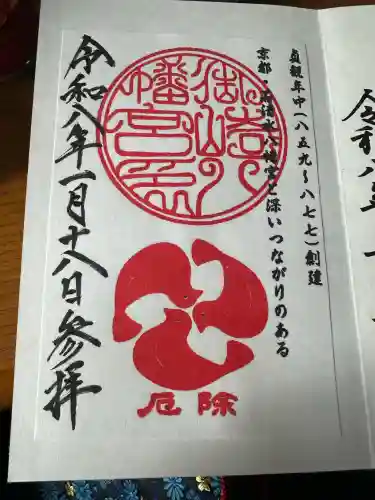 貞観年中(八五九〜八七七)創建
京都・石清水八幡宮と深いつながりのある
御崎八
幡宮印
令和八年一月十八日参拝
厄除